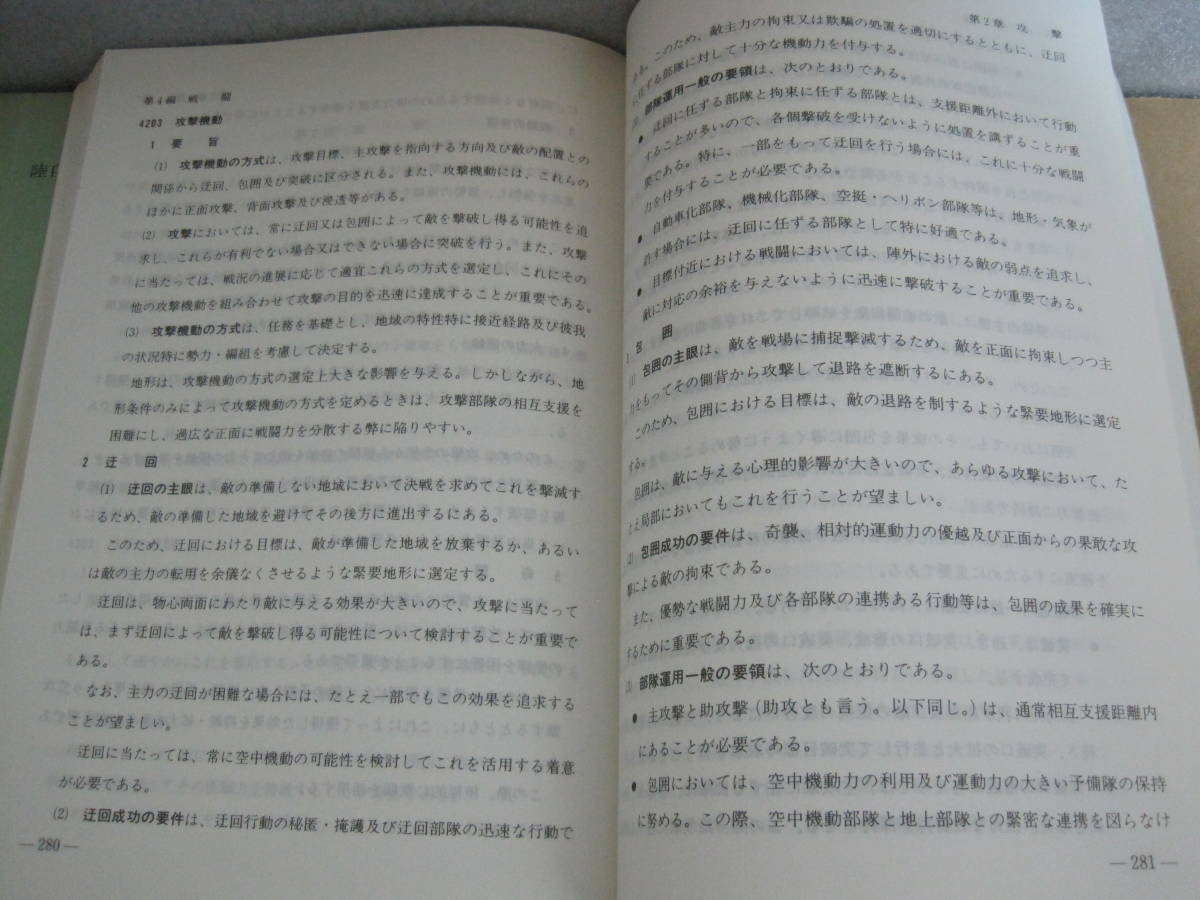 陸自
第4編 戦 闘
4203 攻撃機動
1 要 旨
(1) 攻撃機動の方式は、攻撃目標、主攻撃を指向する方向及び敵の配置との
関係から迂回、包囲及び突破に区分される。また、攻撃機動には、これらの
ほかに正面攻撃、背面攻撃及び浸透等がある。
(2) 攻撃においては、常に迂回又は包囲によって敵を撃破し得る可能性を追
求し、これらが有利でない場合又はできない場合に突破を行う。また、攻撃
に当たっては、戦況の進展に応じて適宜これらの方式を選定し、これにその
他の攻撃機動を組み合わせて攻撃の目的を迅速に達成することが重要である。
(3) 攻撃機動の方式は、任務を基礎とし、地域の特性特に接近経路及び彼我
の状況特に勢力・編組を考慮して決定する。
地形は、攻撃機動の方式の選定上大きな影響を与える。しかしながら、地
形条件のみによって攻撃機動の方式を定めるときは、攻撃部隊の相互支援を
困難にし、過広な正面に戦闘力を分散する弊に陥りやすい。
2 迂 回
(1) 迂回の主眼は、敵の準備しない地域において決戦を求めてこれを撃滅す
るため、敵の準備した地域を避けてその後方に進出するにある。
このため、迂回における目標は、敵が準備した地域を放棄するか、あるい
は敵の主力の転用を余儀なくさせるような緊要地形に選定する。
迂回は、物心両面にわたり敵に与える効果が大きいので、攻撃に当たって
は、まず迂回によって敵を撃破し得る可能性について検討することが重要で
ある。
なお、主力の迂回が困難な場合には、たとえ一部でもこの効果を追求する
ことが望ましい。
迂回に当たっては、常に空中機動の可能性を検討してこれを活用する着意
が必要である。
(2) 迂回成功の要件は、迂回行動の秘匿・掩護及び迂回部隊の迅速な行動で
—280—
第2章 攻 撃
ある。このため、敵主力の拘束又は欺騙の処置を適切にするとともに、迂回
に任ずる部隊に対して十分な機動力を付与する。
部隊運用一般の要領は、次のとおりである。
● 迂回に任ずる部隊と拘束に任ずる部隊とは、支援距離外において行動
することが多いので、各個撃破を受けないように処置を講ずることが重
要である。特に、一部をもって迂回を行う場合には、これに十分な戦闘
力を付与することが必要である。
● 自動車化部隊、機械化部隊、空挺・ヘリボン部隊等は、地形・気象が
許す場合には、迂回に任ずる部隊として特に好適である。
● 目標付近における戦闘においては、陣外における敵の弱点を追求し、
敵に対応の余裕を与えないように迅速に撃破することが重要である。
包 囲
(1) 包囲の主眼は、敵を戦場に捕捉撃滅するため、敵を正面に拘束しつつ主
力をもってその側背から攻撃して退路を遮断するにある。
このため、包囲における目標は、敵の退路を制するような緊要地形に選定
する。
包囲は、敵に与える心理的影響が大きいので、あらゆる攻撃において、た
とえ局部においてもこれを行うことが望ましい。
(2) 包囲成功の要件は、奇襲、相対的運動力の優越及び正面からの果敢な攻
撃による敵の拘束である。
また、優勢な戦闘力及び各部隊の連携ある行動等は、包囲の成果を確実に
するために重要である。
(3) 部隊運用一般の要領は、次のとおりである。
● 主攻撃と助攻撃(助攻とも言う。以下同じ。)は、通常相互支援距離内
にあることが必要である。
● 包囲においては、空中機動力の利用及び運動力の大きい予備隊の保持
に努める。この際、空中機動部隊と地上部隊との緊密な連携を図らなけ
—281—